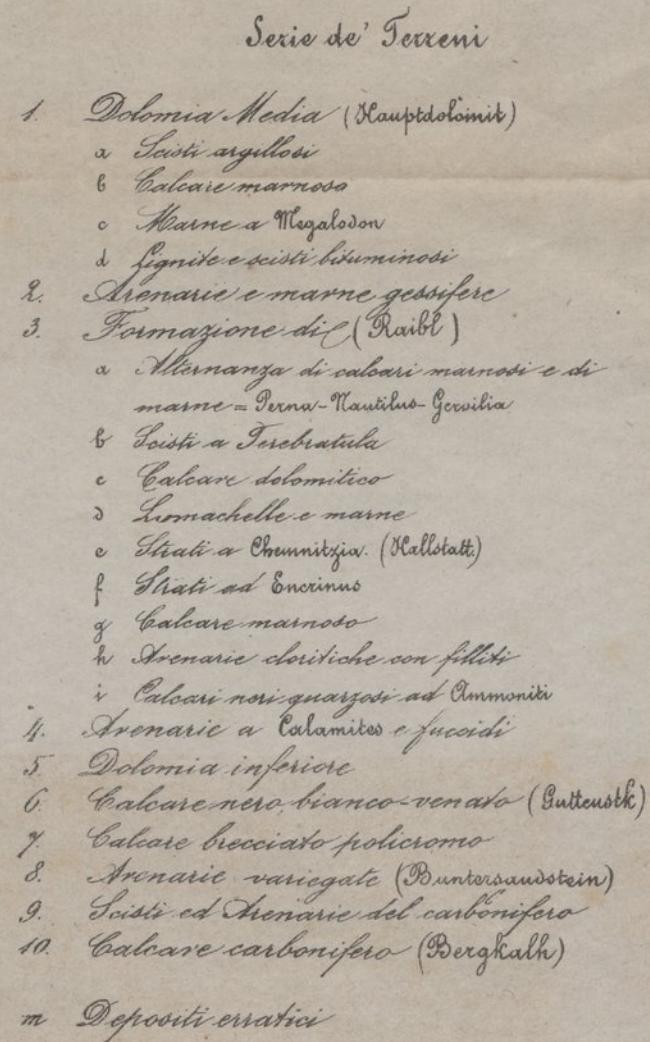 Serie de' Terreni
1. Dolomia Media (Hauptdolomit)
a Scisti argillosi
b Calcare marnoso
c Marne a Megalodon
d Lignite e scisti bituminosi
2. Arenarie e marne gessifere
3. Formazione di (Raibl)
a Alternanza di calcari marnosi e di
marne = Perna - Nautilus - Gervilia
b Scisti a Terebratula
c Calcare dolomitico
d Lumachelle e marne
e Strati a Chemnitzia. (Hallstatt.)
f Strati ad Encrinus
g Calcare marnoso
h Arenarie cloritiche con filliti
i Calcari neri quarzosi ad Ammoniti
4. Arenarie a Calamites e fucoidi
5. Dolomia inferiore
6. Calcare nero, bianco-venato (Guttenstk)
7. Calcare brecciato policromo
8. Arenarie variegate (Buntersandstein)
9. Scisti ed Arenarie del carbonifero
10. Calcare carbonifero (Bergkalh)
m Depositi erratici